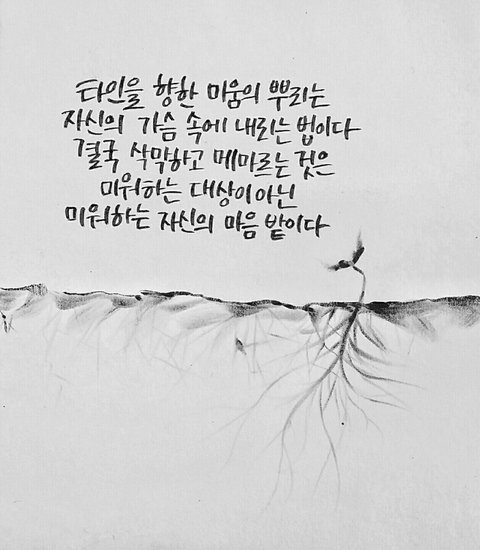 타인을 향한 미움의 뿌리는
자신의 가슴 속에 내리는 법이다
결국 삭막하고 메마르는 것은
미워하는 대상이 아닌
미워하는 자신의 마음 밭이다